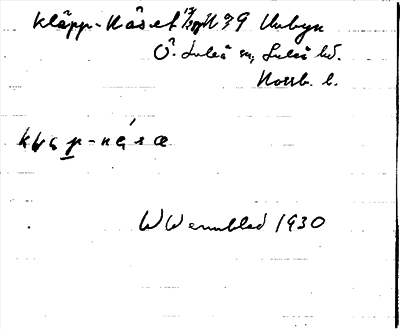 Kläpp-Näset N 39 Unbyn
Ö. Luleå sn, Luleå hd.
Norrb. l.
W Wennblad 1930